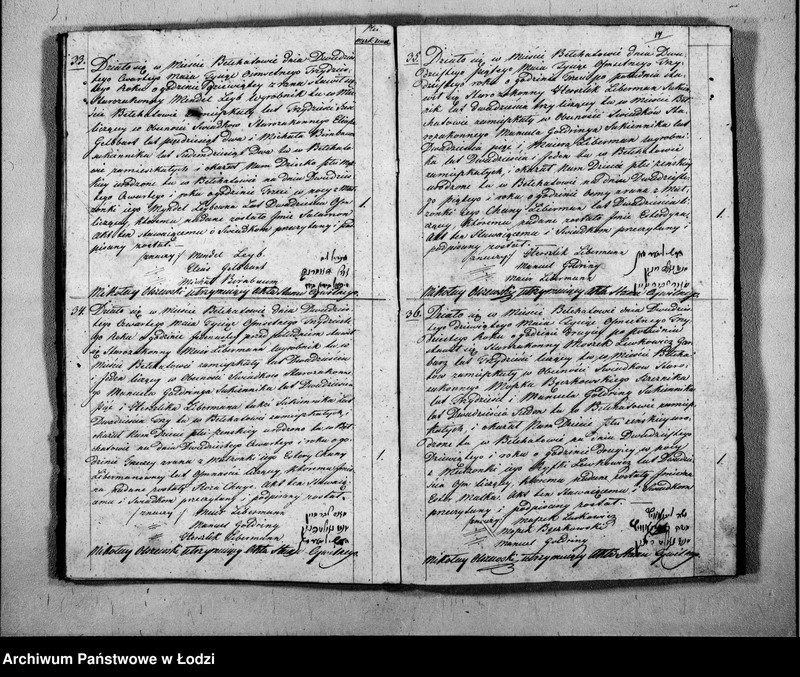 Płci
męzk. żensk.
33.
Działo się w Mieście Bełchatowie dnia Dwudzie=
stego Czwartego Maja Tysiąc Osmsetnego Trzydzie=
stego Roku o godzinie Dziewiątej z rana stawił się
Starozakonny Mendel Leyb Wyrobnik tu w Mie=
ście Bełchatowie zamieszkały lat Trzydzieści
liczący w obecności Świadków Starozakonnego Eliasa
Gelbbart lat pięćdziesiąt dwa i Michała Birnbaum
sukiennika lat Siedemdziesiąt Dwa tu w Bełchatowie
zamieszkałych i okazał Nam Dziecko płci męz=
kiej urodzone tu w Bełchatowie na dniu Dwudzies=
tego Czwartego i roku o godzinie Trzeci w nocy z Mał=
żonki jego Lat Dwadzieścia
liczącej, któremu nadane zostało Imie Salamon
Akt ten stawaiącemu i Świadkom przeczytany i pod=
pisany został.
1.
Mendel Leyb.
Elias Gelbbart
Michał Birnbaum
Mikołay Olszewski utrzymuiący Akta Stanu Cywilnego.
34.
Działo się w Mieście Bełchatowie dnia Dwudzies=
tego Czwartego Maja Tysiąc Osmsetnego Trzydzieste=
go Roku o godzinie przed południem stawił
się Starozakonny Meier Liberman Wyrobnik tu w
Mieście Bełchatowie zamieszkały lat Dwadzieścia
i jeden liczący w obecności Świadków Starozakon=
nego Manuela Goldringa Sukiennika lat Dwadzieścia
pięć i Herszlika Libermana także Sukiennika lat
Dwadzieścia Trzy tu w Bełchatowie zamieszkałych,
okazał Nam Dziecie płci żenskiej urodzone tu w Beł=
chatowie na dniu Dwudziestego Czwartego i roku o go=
dzinie Trzeciey z rana z Małżonki jego Estery Chany
Libermanowny lat Osmnaście liczącej, któremu Imie
nadane zostały Akt ten Stawaią=
cemu i Świadkom przeczytany i podpisany został.
1.
Meier Libermann
Manuel Goldring
Herszlik Libermann
Mikołay Olszewski utrzymuiący Akta Stanu Cywilnego.
17
35.
Działo się w Mieście Bełchatowie dnia Dwu=
dziestego piątego Maja Tysiąc Osmsetnego Trzy=
dziestego roku o godzinie po południu sta=
wił się Starozakonny Herszlik Liberman Sukien=
nik lat Dwadzieścia trzy liczący tu w Mieście Beł=
chatowie zamieszkały w obecności Świadków Sta=
rozakonnego Manuela Goldringa Sukiennika lat
Dwadzieścia pięć i Meiera Liberman wyrobni=
ka lat Dwadzieścia i jeden tu w Bełchatowie
zamieszkałych, i okazał Nam Dziecie płci żenskiej
urodzone tu w Bełchatowie na dniu Dwudzieste=
go piątego i roku o godzinie osmej z rana z Mał=
żonki jego Chany Liberman lat Dwadzieścia li=
czącej, któremu nadane zostało Imie
Akt ten Stawaiącemu i Świadkom przeczytany i
podpisany został.
1.
Herszlik Libermann
Manuel Goldring
Meier Libermann
Mikołay Olszewski utrzymuiący Akta Stanu Cywilnego.
36.
Działo się w Mieście Bełchatowie dnia Dwudzies=
tego Dziewiątego Maja Tysiąc Osmsetnego Trzy=
dziestego Roku o godzinie po południu
stawił się Starozakonny Moszek Lewkowicz
lat Trzydzieści liczący tu w Mieście Bełcha=
towie zamieszkały w obecności Świadków Staro=
zakonnego Moska Berkowskiego
lat Trzydzieści i Manuela Goldring Sukiennika
lat Dwadzieścia tu w Bełchatowie zamiesz=
kałych, i okazał Nam Dziecie płci żenskiej uro=
dzone tu w Bełchatowie na dniu Dwudziestego
Dziewiątego i roku o godzinie Drugiey w nocy
z Małżonki jego Lewkowicz lat Dwadzie=
ścia liczącej, któremu nadane zostały Imiona
Malka. Akt ten Stawaiącemu i Świadkom
przeczytany i podpisany został.
1.
Moszek Lewkowicz
Mosek Berkowski
Manuel Goldring
Mikołay Olszewski utrzymuiący Akta Stanu Cywilnego
Archiwum Państwowe w Łodzi